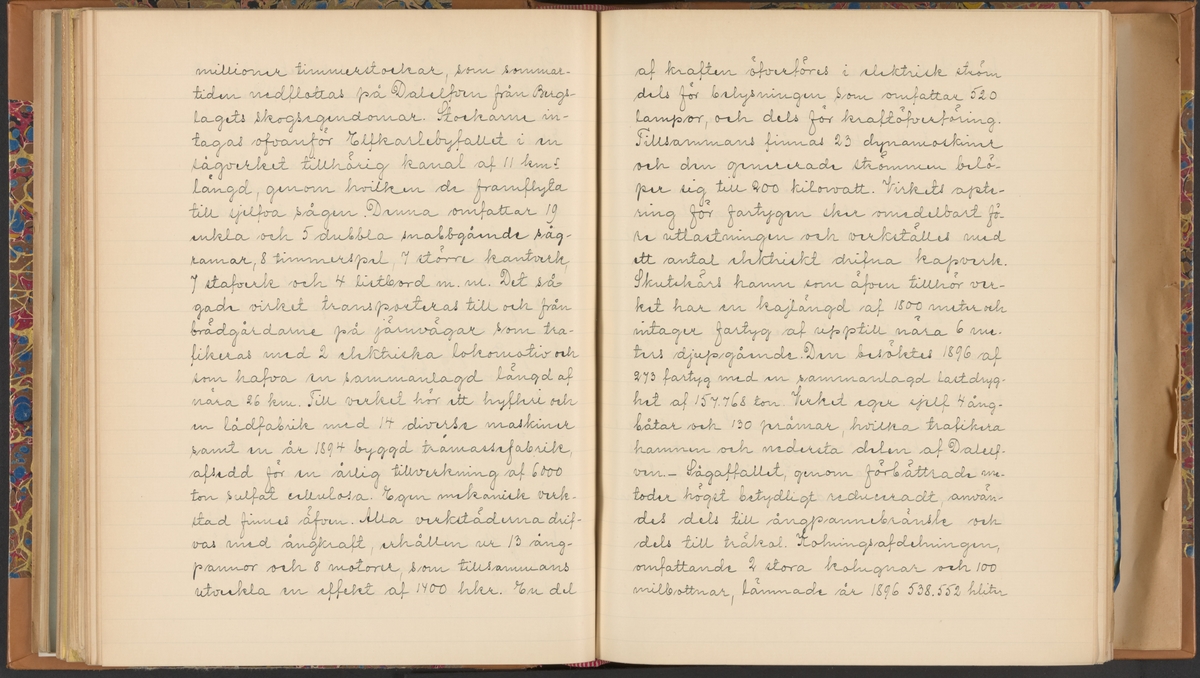 millioner timmerstockar, som sommar-
tiden nedflottas på Dalelfven från Bergs-
lagets skogsegendomar. Stockarne in-
tagas ofvanför Elfkarlebyfallet i en
sågverket tillhörig kanal af 11 kms
längd, genom hvilken de framflyta
till sjelfva sågen. Denna omfattar 19
enkla och 5 dubbla snabbgående såg-
ramar, 8 timmerspel, 7 större kantverk,
7 stafverk och 4 listbord m. m. Det så-
gade virket transporteras till och från
brädgårdarne på järnvägar som tra-
fikeras med 2 elektriska lokomotiv och
som hafva en sammanlagd längd af
nära 26 km. Till verket hör ett hyfleri och
en lådfabrik med 14 diverse maskiner
samt en år 1894 byggd trämassefabrik,
afsedd för en årlig tillverkning af 6000
ton sulfat cellulosa. Egen mekanisk verk-
stad finnes äfven. Alla verkstäderna drif-
vas med ångkraft, erhållen ur 13 ång-
pannor och 8 motorer, som tillsammans
utveckla en effekt af 1400 hkr. En del
af kraften öfverföres i elektrisk ström
dels för belysningen som omfattar 520
lampor, och dels för kraftöfverföring.
Tillsammans finnas 23 dynamoskiner
och den genererade strömmen belö-
per sig till 200 kilowatt. Virkets apte-
ring för fartygen sker omedelbart fö-
re utlastningen och verkställes med
ett antal elektriskt drifna kapverk.
Skutskärs hamn som äfven tillhör ver-
ket har en kajlängd af 1800 meter och
intager fartyg af upptill nära 6 me-
ters djupgående. Den besöktes 1896 af
273 fartyg med en sammanlagd lastdryg-
het af 157.768 ton. Verket eger sjelf 4 ång-
båtar och 130 pråmar, hvilka trafikera
hamnen och nedersta delen af Dalelf-
ven. — Sågaffallet, genom förbättrade me-
toder högst betydligt reduceradt, använ-
des dels till ångpannebränsle och
dels till träkol. Kolningsafdelningen,
omfattande 2 stora kolugnar och 100
milbottnar, lämnade år 1896 538.552 hliter